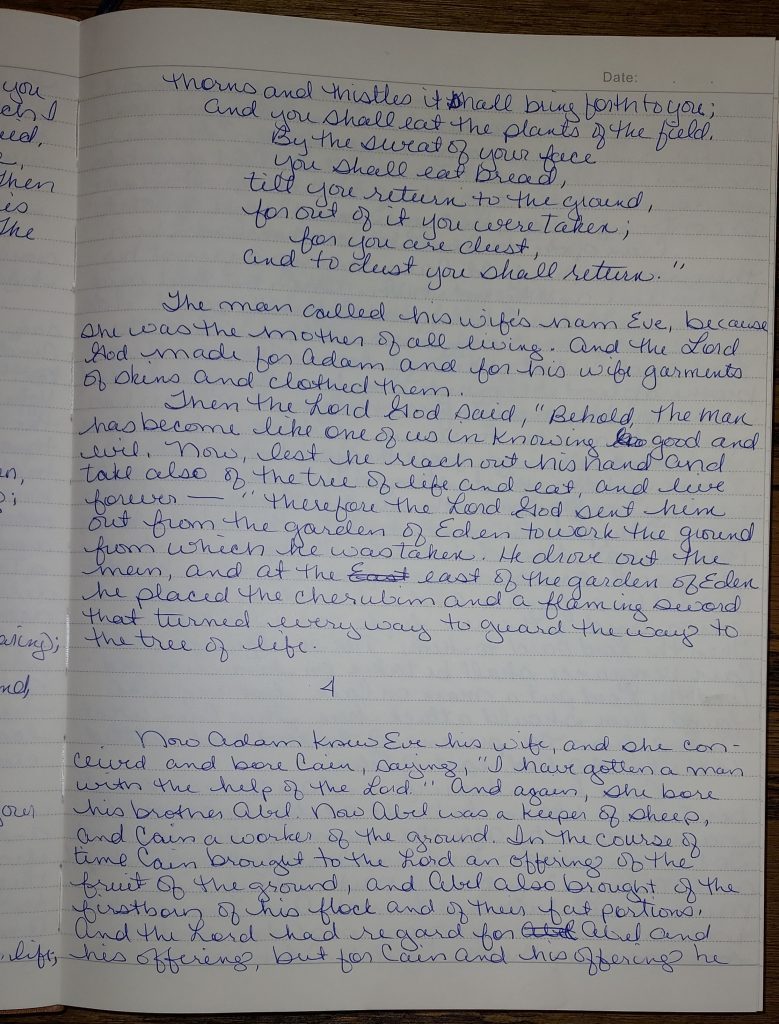 you
ch I
eed.
Then
is
The
en,
aring);
nd,
your
life;
Date:
thorns and thistles it shall bring forth to you;
and you shall eat the plants of the field.
By the sweat of your face
you shall eat bread,
till you return to the ground,
for out of it you were taken;
for you are dust,
and to dust you shall return."
The man called his wife's nam Eve, because
she was the mother of all living. And the Lord
God made for Adam and for his wife garments
of skins and clothed them.
Then the Lord God said, "Behold, the man
has become like one of us in knowing good and
evil. Now, lest he reach out his hand and
take also of the tree of life and eat, and live
forever — " therefore the Lord God sent him
out from the garden of Eden to work the ground
from which he was taken. He drove out the
man, and at the East east of the garden of Eden
he placed the cherubim and a flaming sword
that turned every way to guard the way to
the tree of life.
4
Now Adam knew Eve his wife, and she con-
ceived and bore Cain, saying, "I have gotten a man
with the help of the Lord." And again, she bore
his brother Abel. Now Abel was a keeper of sheep,
and Cain a worker of the ground. In the course of
time Cain brought to the Lord an offering of the
fruit of the ground, and Abel also brought of the
firstborn of his flock and of their fat portions.
And the Lord had regard for Abel and
his offering, but for Cain and his offering he